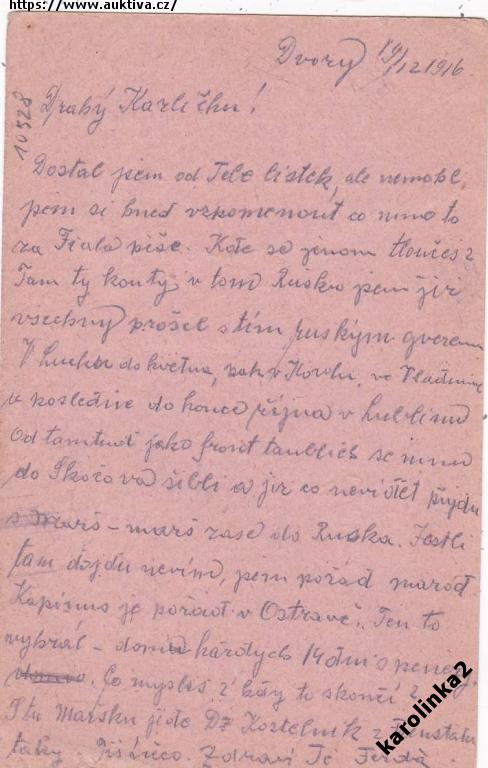 https://www.auktiva.cz/
Dvory 19/12 1916
10528
Drahý Karlíčku!
Dostal jsem od Tebe lístek, ale nemohl
jsem si hned vzpomenout co mno to
za Fiala píše. Kde se jenom tlučeš?
Tam ty kouty v tom Rusku jsem již
všechny prošel s tím ruským gverem
V Lucku do května, pak v Kovlu, ve Vladimir
a posledne do konce října v Lublinu
Od tamtud jako front se mnu
do Skočova šibli a již co nevidět půjdu
marš-marš zase do Ruska. Jestli
tam dojdu nevím, jsem pořád marod.
je pořád v Ostravě. Ten to
vybrál - doma každých 14 dní s
. Co myslíš? kdy to skončí?
S tu Maršku jide Dr Kostelník z
taky . Zdraví Tě Ferda
karolinka2